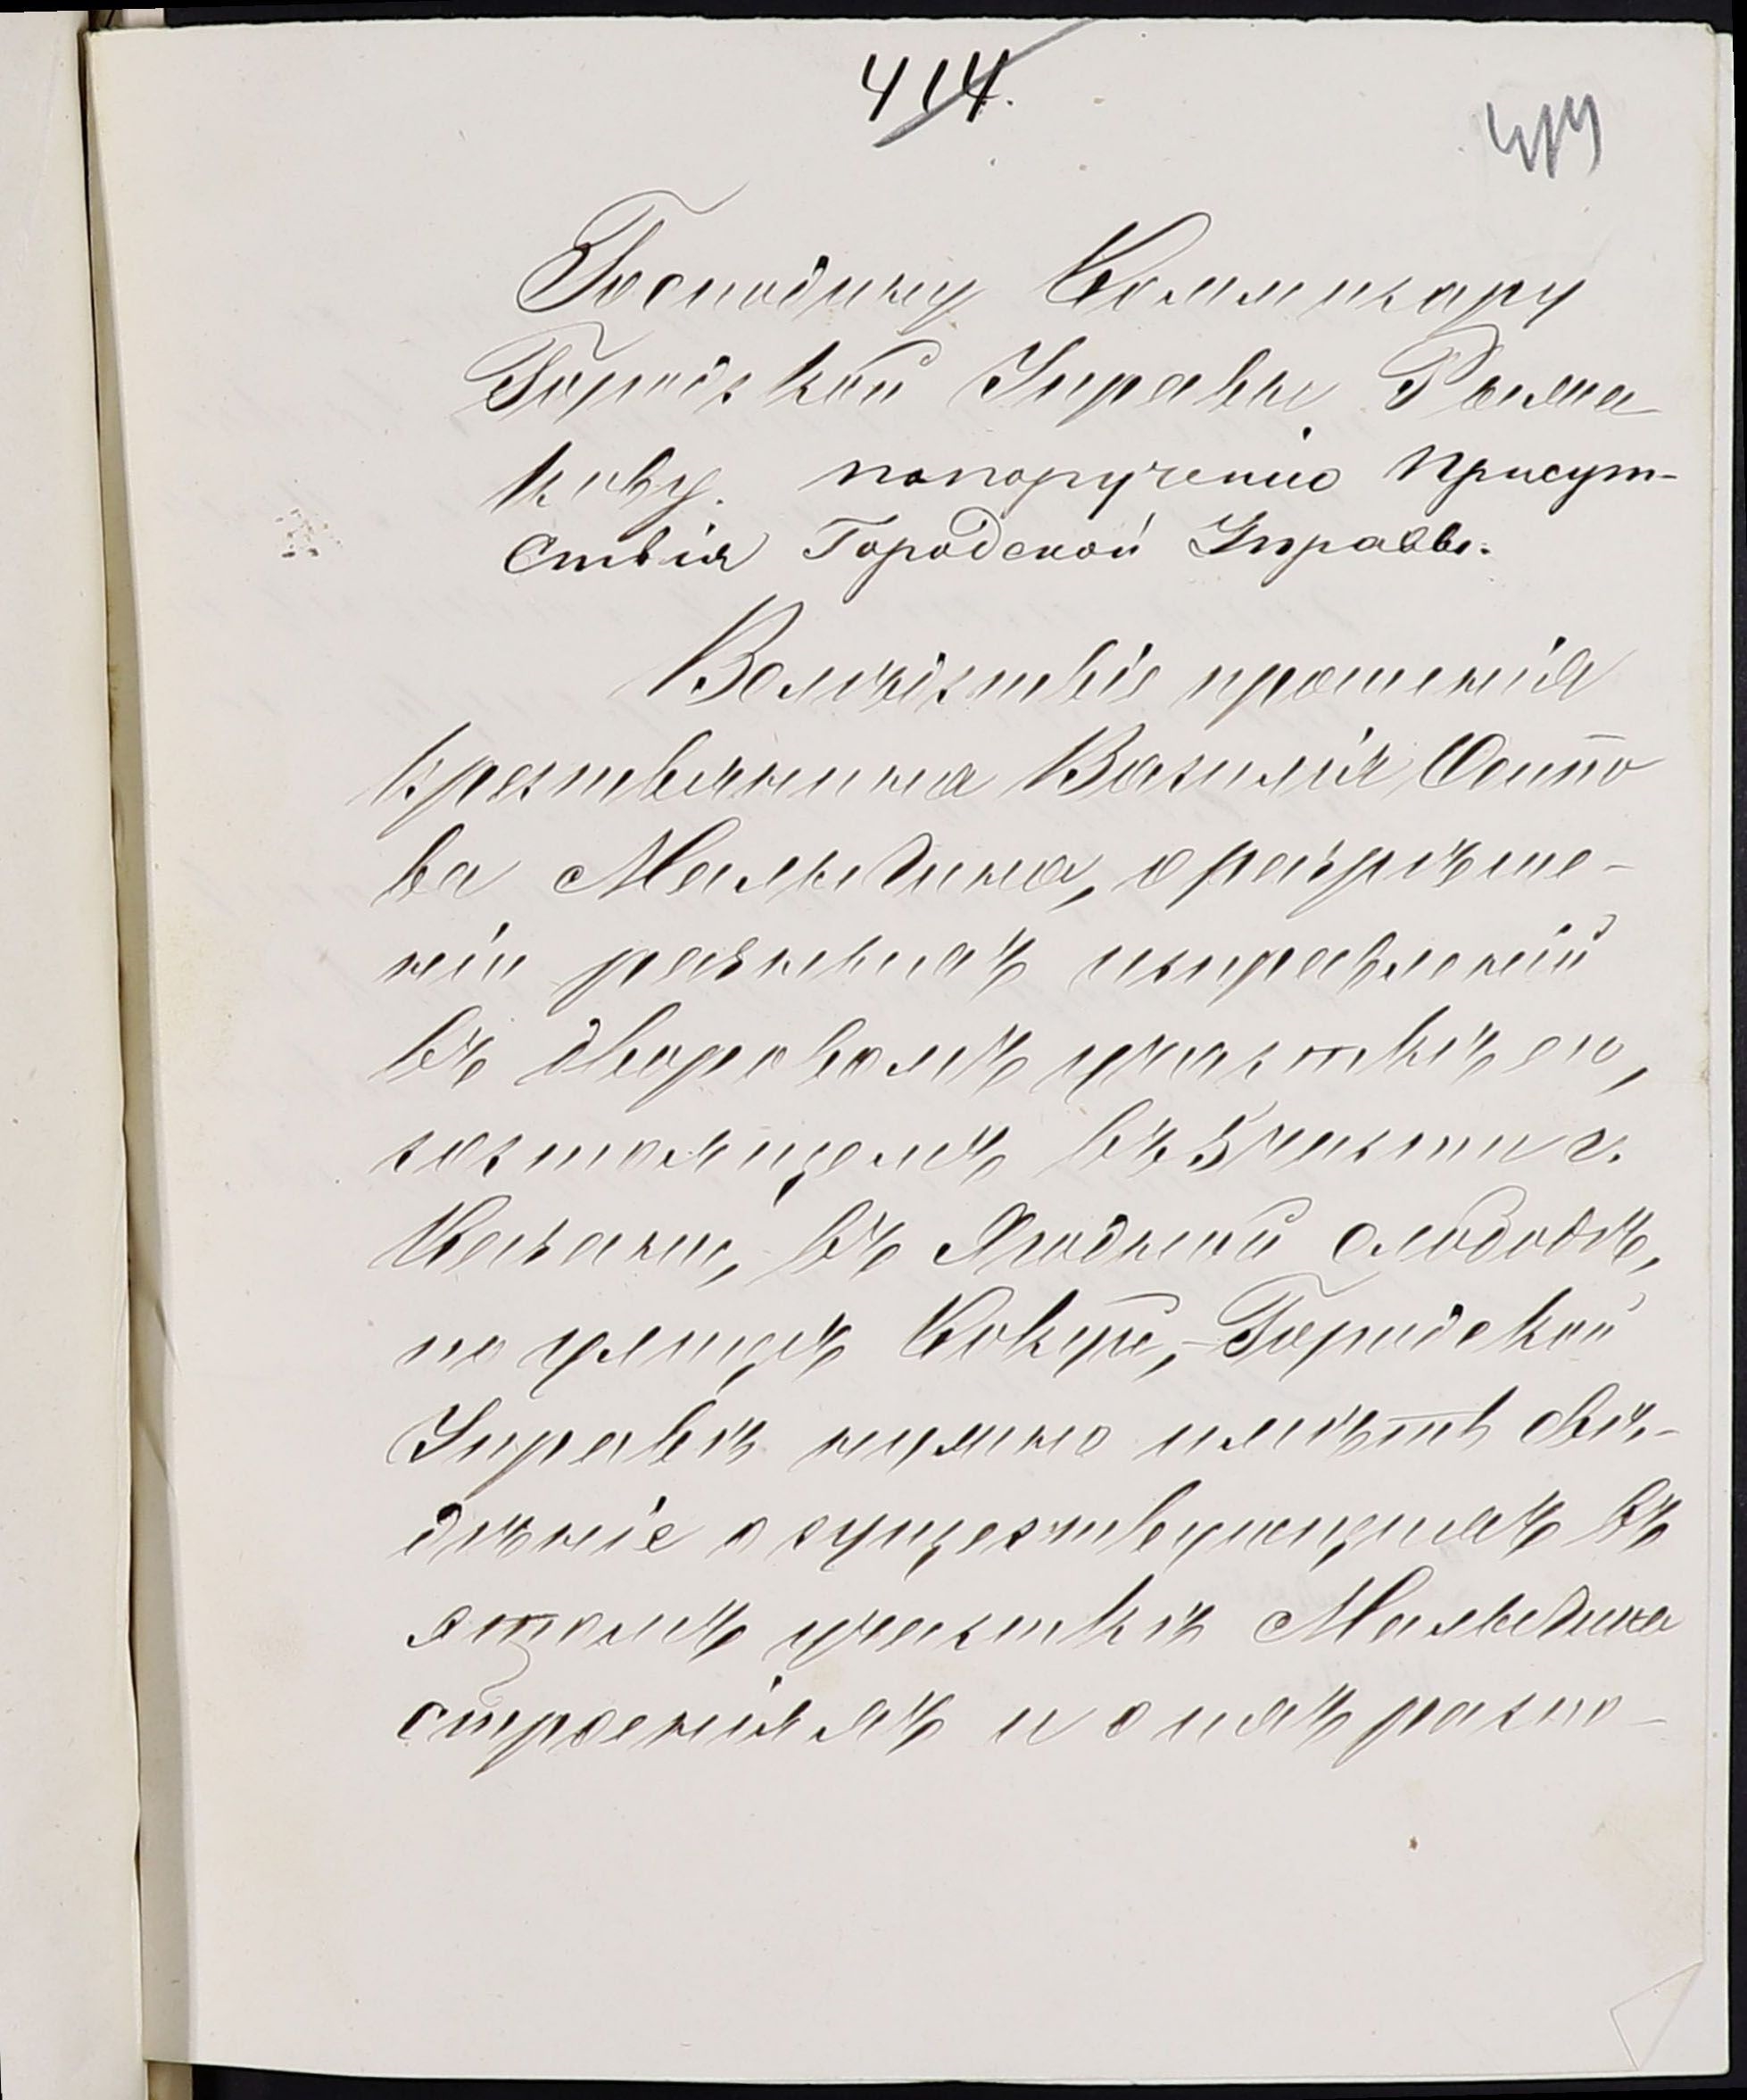 414.
414
Господину Коммисару
Городской Управы Рыма
кову. попорученію Присут-
ствія Городской Управы.
Вслѣдствіе прошенія
крестьянина Василія Осипо
ва Мальгина, о разрѣше-
ніи разныхъ исправленій
въ дворовомъ участкѣ его,
состоящемъ въ 5 части г.
Казани, въ Ягодной слободѣ,
по улицѣ Кокуй, - Городской
Управѣ нужно имѣть свѣ-
дѣніе о существующихъ въ
этомъ участкѣ
строеніяхъ и о ихъ распо-